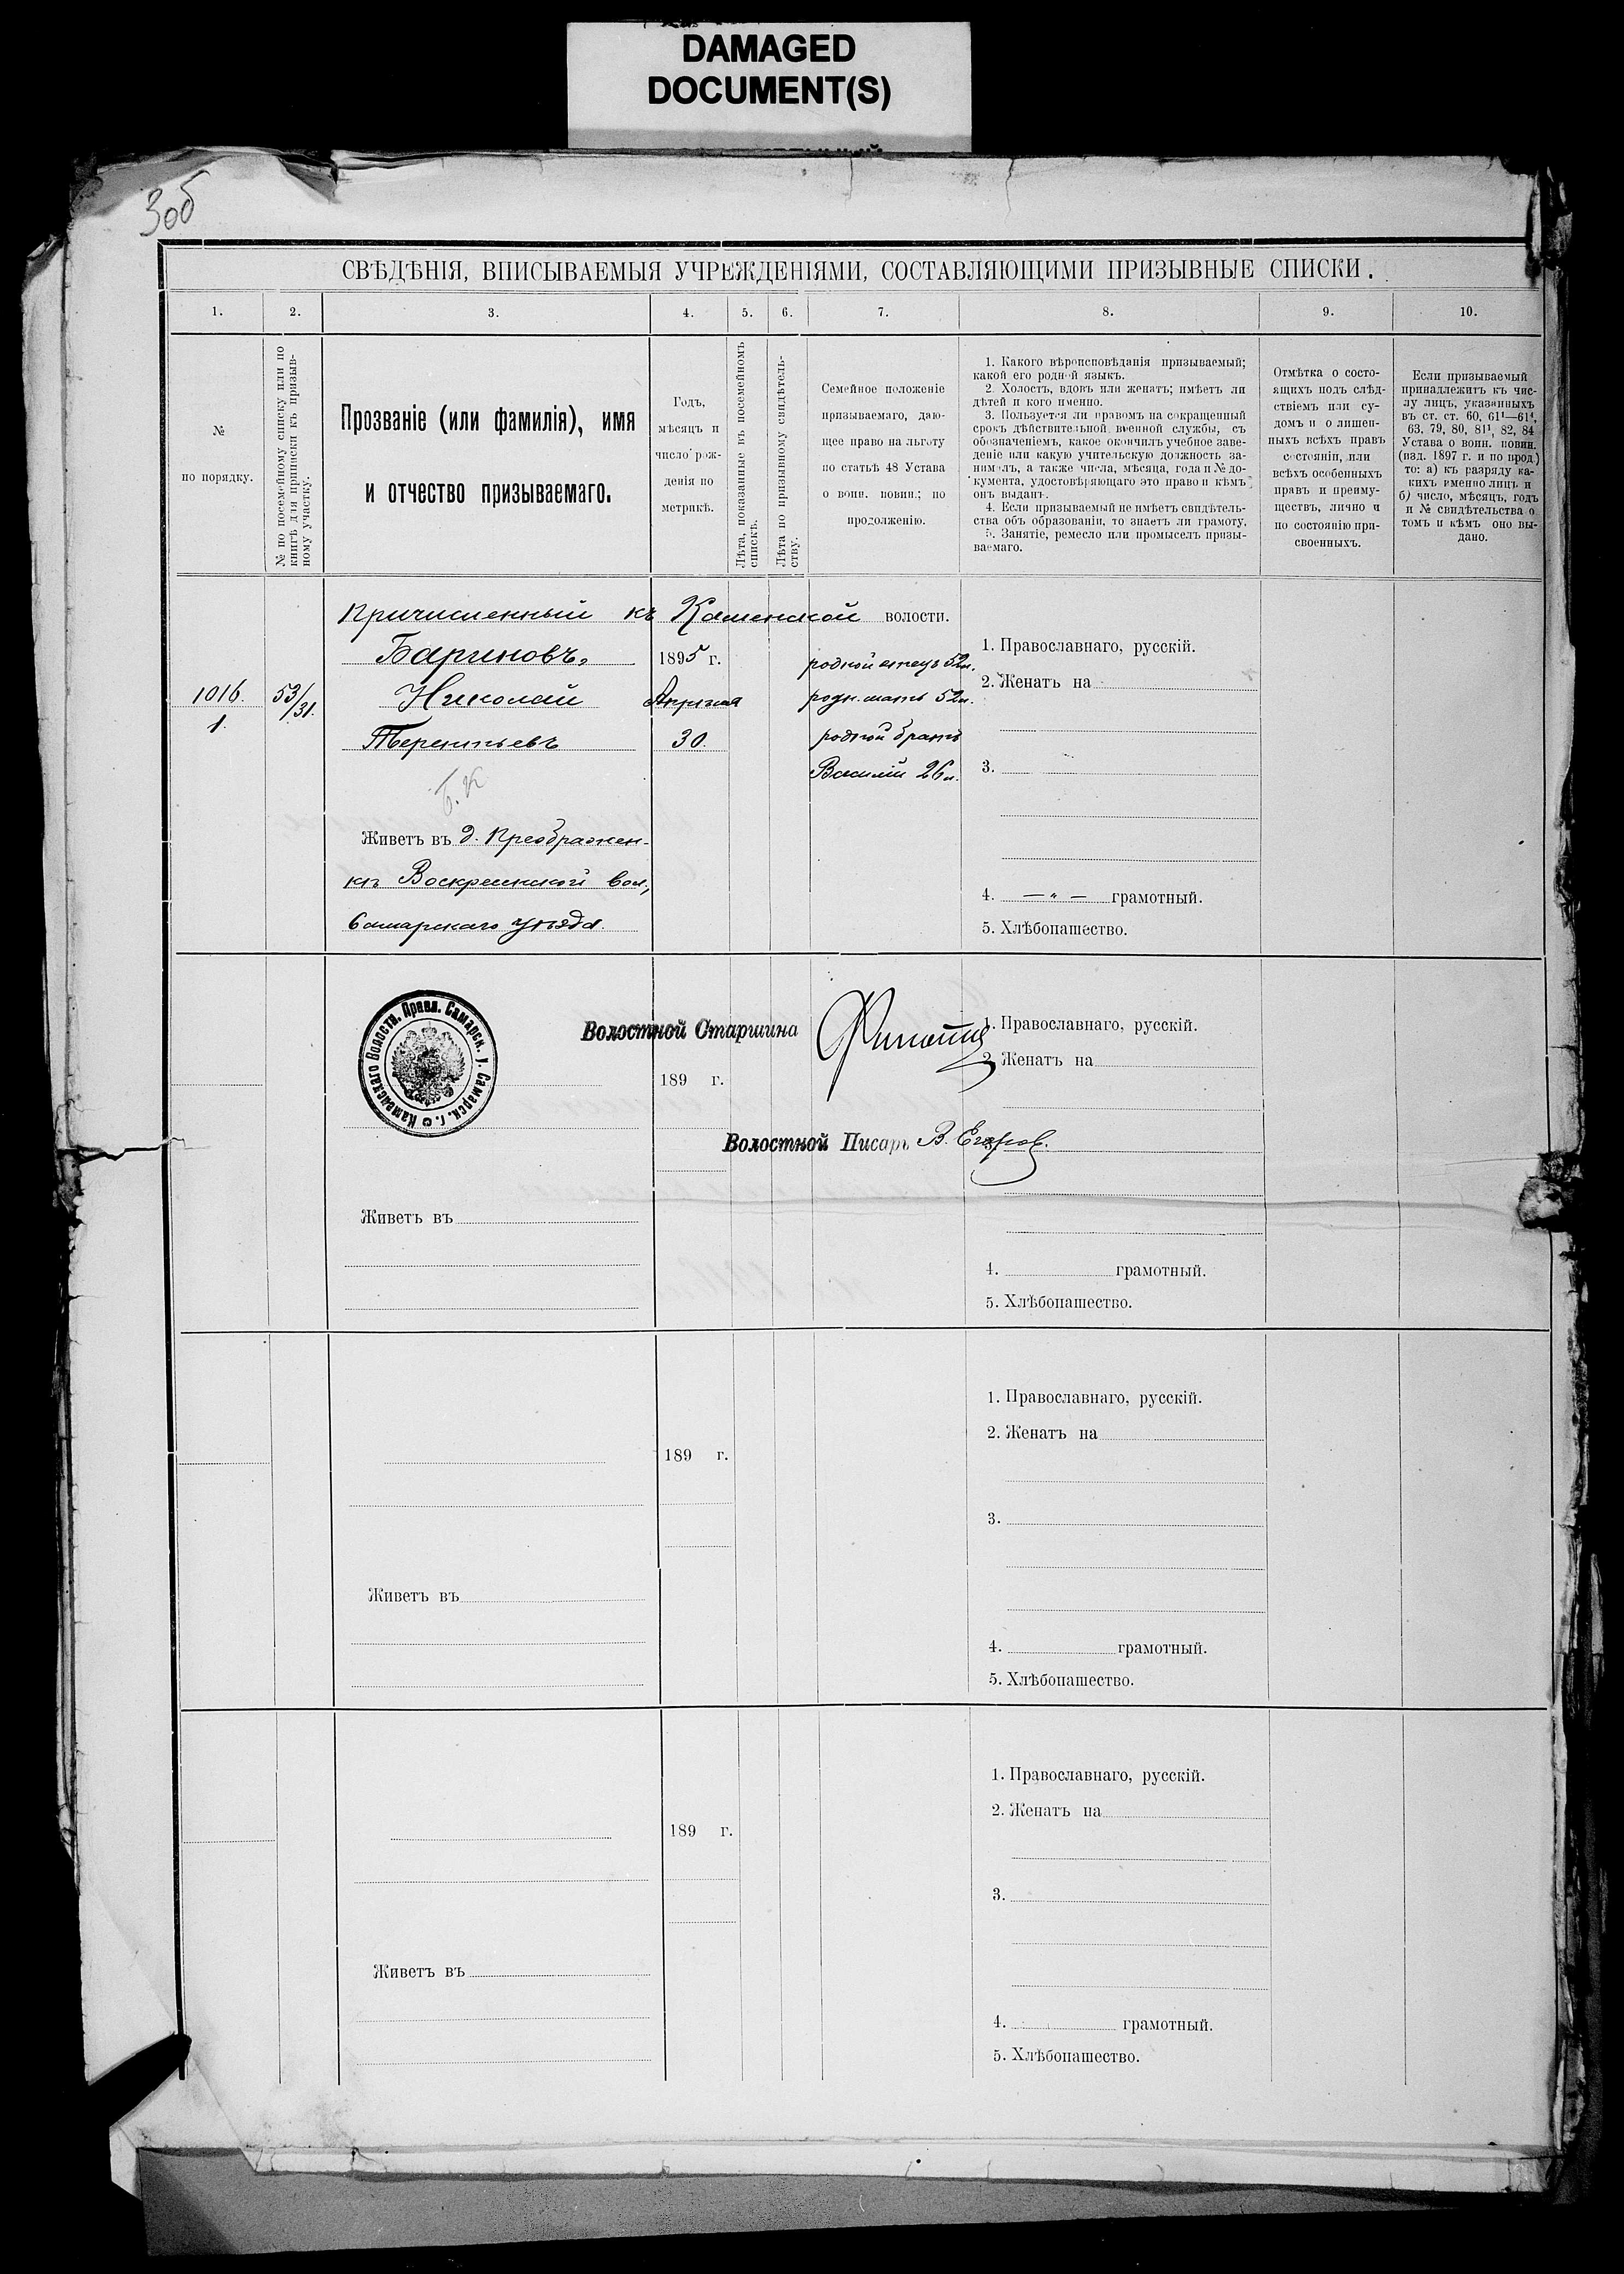 DAMAGED
DOCUMENT(S)
306
СВѢДѢНІЯ, ВПИСЫВАЕМЫЯ УЧРЕЖДЕНІЯМИ, СОСТАВЛЯЮЩИМИ ПРИЗЫВНЫЕ СПИСКИ.
1. 2. 3. 4. 5. 6. 7. 8. 9. 10.
№
по порядку.
№ по посемейному списку или по
книгѣ для приписки къ призыв-
ному участку.
Прозваніе (или фамилія), имя
и отчество призываемаго.
Годъ,
мѣсяцъ и
число рож-
денія по
метрикѣ.
Лѣта, показанные въ посемейномъ
спискѣ.
Лѣта по призывному свидѣтель-
ству.
Семейное положеніе
призываемаго, даю-
щее право на льготу
по статьѣ 48 Устава
о воин. повин.; по
продолженію.
1. Какого вѣроисповѣданія призываемый;
какой его родной языкъ.
2. Холостъ, вдовъ или женатъ; имѣетъ ли
дѣтей и кого именно.
3. Пользуется ли правомъ на сокращенный
срокъ дѣйствительной военной службы, съ
обозначеніемъ, какое окончилъ учебное заве-
деніе или какую учительскую должность за-
нималъ, а также числа, мѣсяца, года и № до-
кумента, удостовѣряющаго это право и кѣмъ
онъ выданъ.
4. Если призываемый не имѣетъ свидѣтель-
ства объ образованіи, то знаетъ ли грамоту.
5. Занятіе, ремесло или промыселъ призы-
ваемаго.
Отмѣтка о состо-
ящихъ подъ слѣд-
ствіемъ или су-
домъ и о лишен-
ныхъ всѣхъ правъ
состоянія, или
всѣхъ особенныхъ
правъ и преиму-
ществъ, лично и
по состоянію при-
своенныхъ.
Если призываемый
принадлежитъ къ чис-
лу лицъ, указанныхъ
въ ст. ст. 60, 61¹—61⁴,
63, 79, 80, 81¹, 82, 84
Устава о воин. повин.
(изд. 1897 г. и по прод.)
то: а) къ разряду ка-
кихъ именно лицъ и
б) число, мѣсяцъ, годъ
и № свидѣтельства о
томъ и кѣмъ оно вы-
дано.
Причисленный къ Каменской волости.
1016.
1.
53/31.
Бариновъ,
Николай
Терентьевъ
Б. К
Живетъ въ д. Преображен-
кѣ Воскресенской вол.,
Самарскаго уѣзда.
1895 г.
Апрѣля
30.
родной отецъ 52 л.
родн. мать 52 л.
родной братъ
Василій 26 л.
1. Православнаго, русскій.
2. Женатъ на
3.
4. — " — грамотный.
5. Хлѣбопашество.
Каменскаго Волостн. Правл. Самарск. у. Самарск. г.
Волостной Старшина
189 г.
Волостной Писарь В. Егоров.
Живетъ въ
1. Православнаго, русскій.
2. Женатъ на
4. грамотный.
5. Хлѣбопашество.
189 г.
Живетъ въ
1. Православнаго, русскій.
2. Женатъ на
3.
4. грамотный.
5. Хлѣбопашество.
189 г.
Живетъ въ
1. Православнаго, русскій.
2. Женатъ на
3.
4. грамотный.
5. Хлѣбопашество.